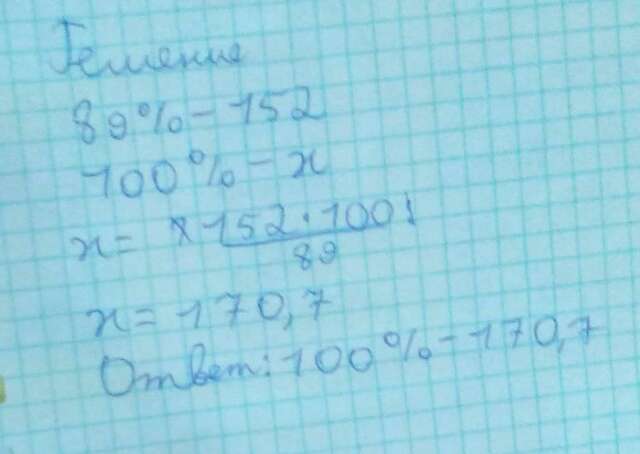 Решение
89% - 152
100% - x
x = 152 · 100
89
x = 170,7
Ответ: 100% - 170,7